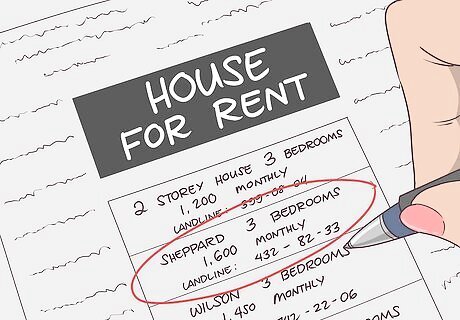 HOUSE
FOR RENT
2 STOREY HOUSE 3 BEDROOMS
1,200 MONTHLY
LANDLINE: 399-08-04
SHEPPARD 3 BEDROOMS
1,600 MONTHLY
LANDLINE: 432-82-33
WILSON 3 BEDROOMS
1,450 MONTHLY
42-22-06